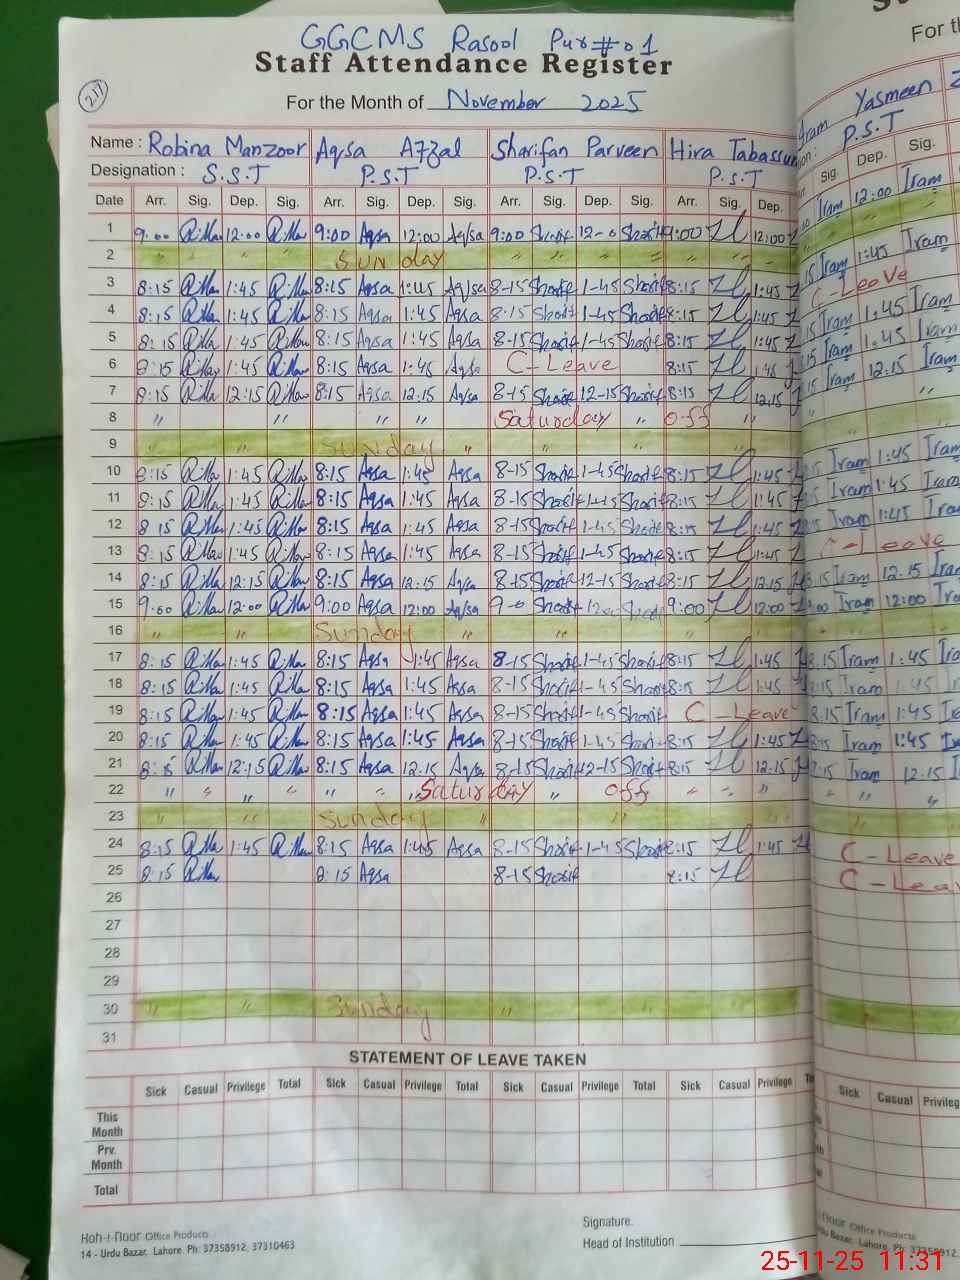 GGCMS Rasool Pur # 01
Staff Attendance Register
217
For the Month of November 2025
Name : Robina Manzoor Aqsa Afzal Sharifan Parveen Hira Tabassum
Designation : S.S.T P.S.T P.S.T P.S.T
Date Arr. Sig. Dep. Sig. Arr. Sig. Dep. Sig. Arr. Sig. Dep. Sig. Arr. Sig. Dep.
1 9:00 12:00 9:00 Aqsa 12:00 Aqsa 9:00 Sharif 12-0 Sharif 9:00 12:00
2 " " " Sunday " " " " " "
3 8:15 1:45 8:15 Aqsa 1:45 Aqsa 8-15 Sharif 1-45 Sharif 8:15 1:45
4 8:15 1:45 8:15 Aqsa 1:45 Aqsa 8-15 Sharif 1-45 Sharif 8:15 1:45
5 8:15 1:45 8:15 Aqsa 1:45 Aqsa 8-15 Sharif 1-45 Sharif 8:15 1:45
6 8:15 1:45 8:15 Aqsa 1:45 Aqsa C-Leave 8:15 1:45
7 8:15 12:15 8:15 Aqsa 12:15 Aqsa 8-15 Sharif 12-15 Sharif 8:15 12:15
8 " " " Saturday " Off "
9 " " Sunday " " " "
10 8:15 1:45 8:15 Aqsa 1:45 Aqsa 8-15 Sharif 1-45 Sharif 8:15 1:45
11 8:15 1:45 8:15 Aqsa 1:45 Aqsa 8-15 Sharif 1-45 Sharif 8:15 1:45
12 8 15 1:45 8:15 Aqsa 1:45 Aqsa 8-15 Sharif 1-45 Sharif 8:15 1:45
13 8:15 1:45 8:15 Aqsa 1:45 Aqsa 8-15 Sharif 1-45 Sharif 8:15 1:45
14 8:15 12:15 8:15 Aqsa 12:15 Aqsa 8-15 Sharif 12-15 Sharif 8:15 12:15
15 9:00 12:00 9:00 Aqsa 12:00 Aqsa 9-0 Sharif Sharif 9:00 12:00
16 " " Sunday " " " "
17 8:15 1:45 8:15 Aqsa 1:45 Aqsa 8-15 Sharif 1-45 Sharif 8:15 1:45
18 8:15 1:45 8:15 Aqsa 1:45 Aqsa 8-15 Sharif 1-45 Sharif 8:15 1:45
19 8:15 1:45 8:15 Aqsa 1:45 Aqsa 8-15 Sharif 1-45 Sharif C - Leave
20 8:15 1:45 8:15 Aqsa 1:45 Aqsa 8-15 Sharif 1-45 Sharif 8:15 1:45
21 8:15 12:15 8:15 Aqsa 12:15 Aqsa 8-15 Sharif 12-15 Sharif 8:15 12:15
22 " " " " " " " Saturday " Off " " "
23 " " Sunday " " "
24 8:15 1:45 8:15 Aqsa 1:45 Aqsa 8-15 Sharif 1-45 Sharif 8:15 1:45
25 8:15 8:15 Aqsa 8-15 Sharif 8:15
26
27
28
29
30 " " Sunday " " "
31
STATEMENT OF LEAVE TAKEN
Sick Casual Privilege Total Sick Casual Privilege Total Sick Casual Privilege Total Sick Casual Privilege
This Month
Prv. Month
Total
Koh-i-Noor Office Products
14 - Urdu Bazar, Lahore. Ph: 37358912, 37310463
Signature.
Head of Institution
For
Yasmeen
P.S.T
Sig. Dep. Sig.
Iram 12:00 Iram
Iram 1:45 Iram
C-Leave
Iram 1:45 Iram
Iram 1:45 Iram
Iram 12.15 Iram
"
Iram 1:45 Iram
Iram 1:45 Iram
Iram 1:45 Iram
C-Leave
8:15 Iram 12.15 Iram
Iram 12:00 Iram
" "
8:15 Iram 1:45
8:15 Iram 1:45
8:15 Iram 1:45
Iram 1:45
Iram 12.15
" " "
C - Leave
C - Leave
Sick Casual Privilege
Office Products
Bazar, Lahore. Ph: 37358912,
25-11-25 11:31